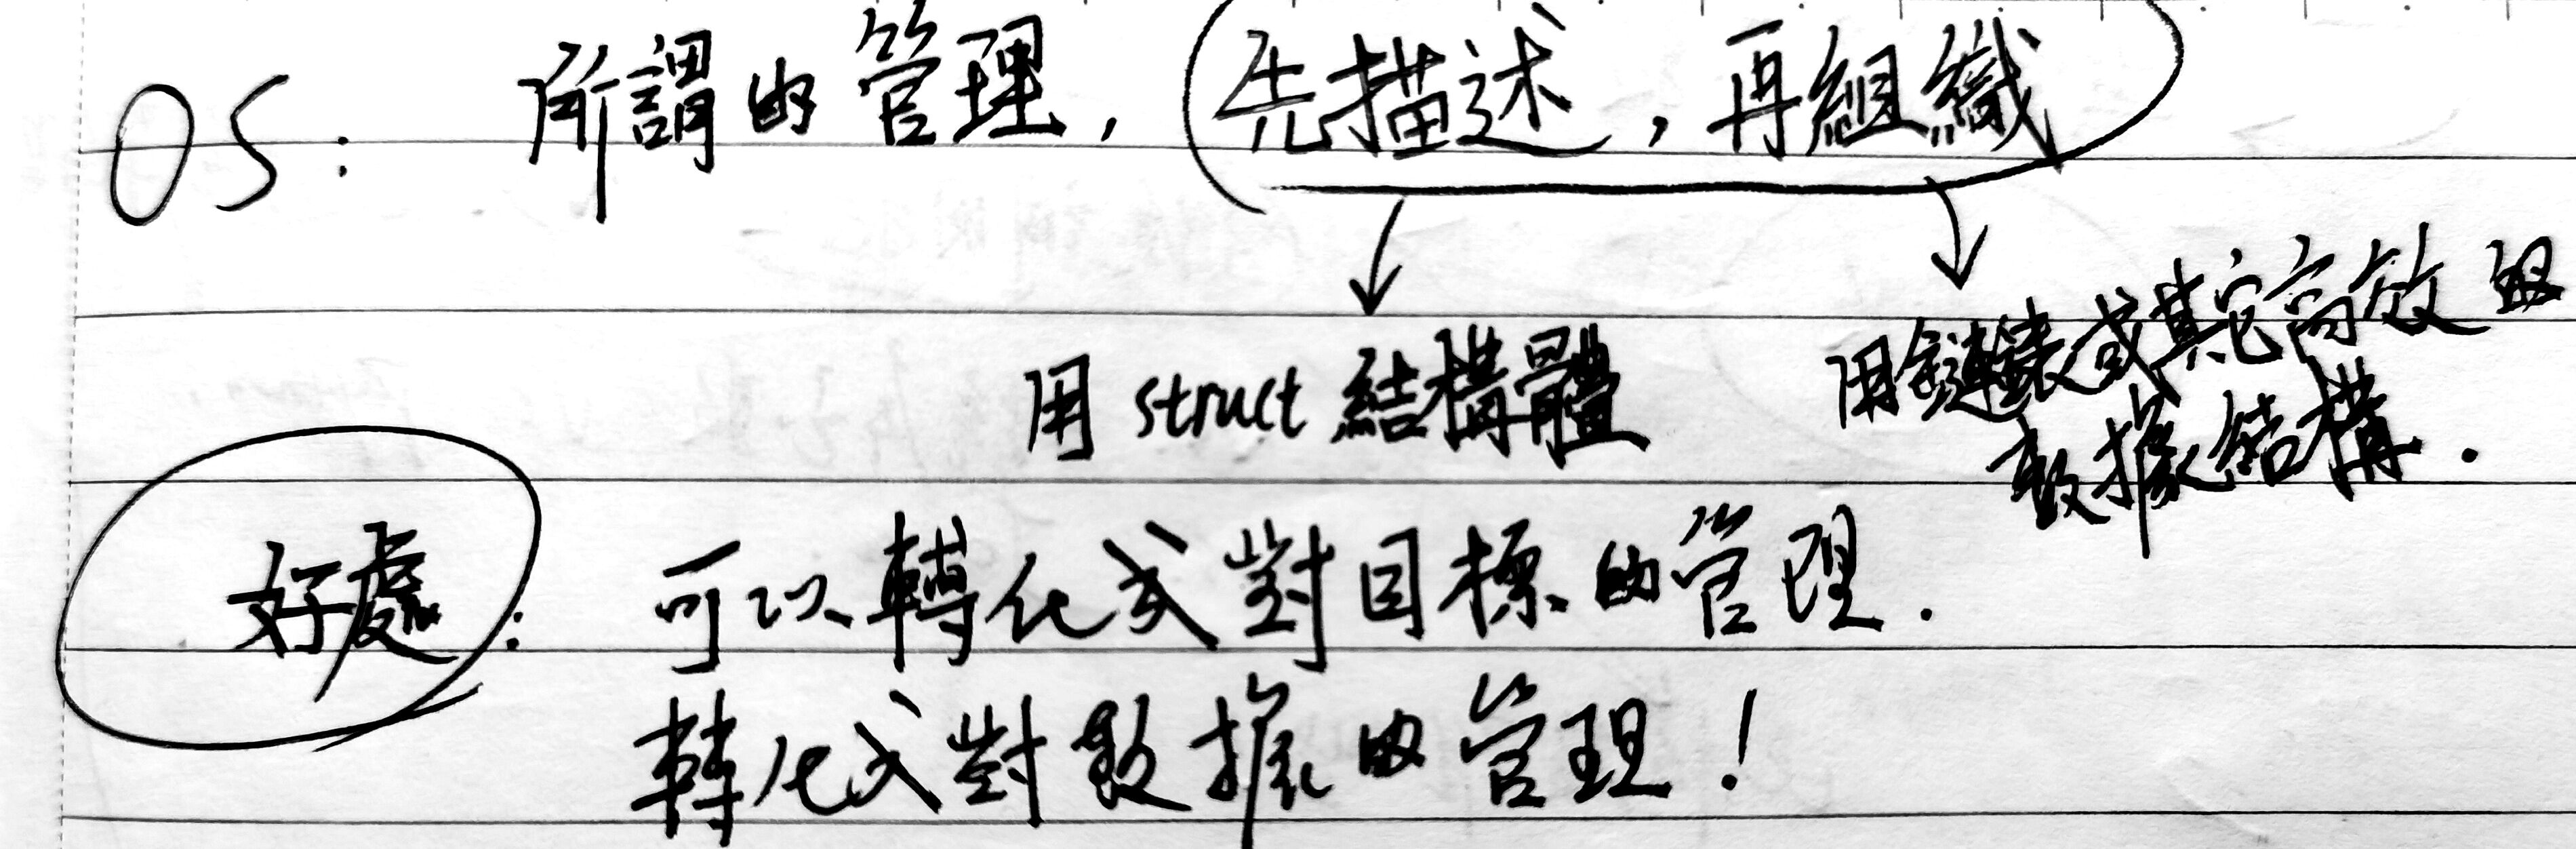 OS: 所謂的管理, 先描述, 再組織
用struct結構體
用鏈錶或其它高效的
數據結構.
好處: 可以轉化成對目標的管理.
轉化成對數據的管理!